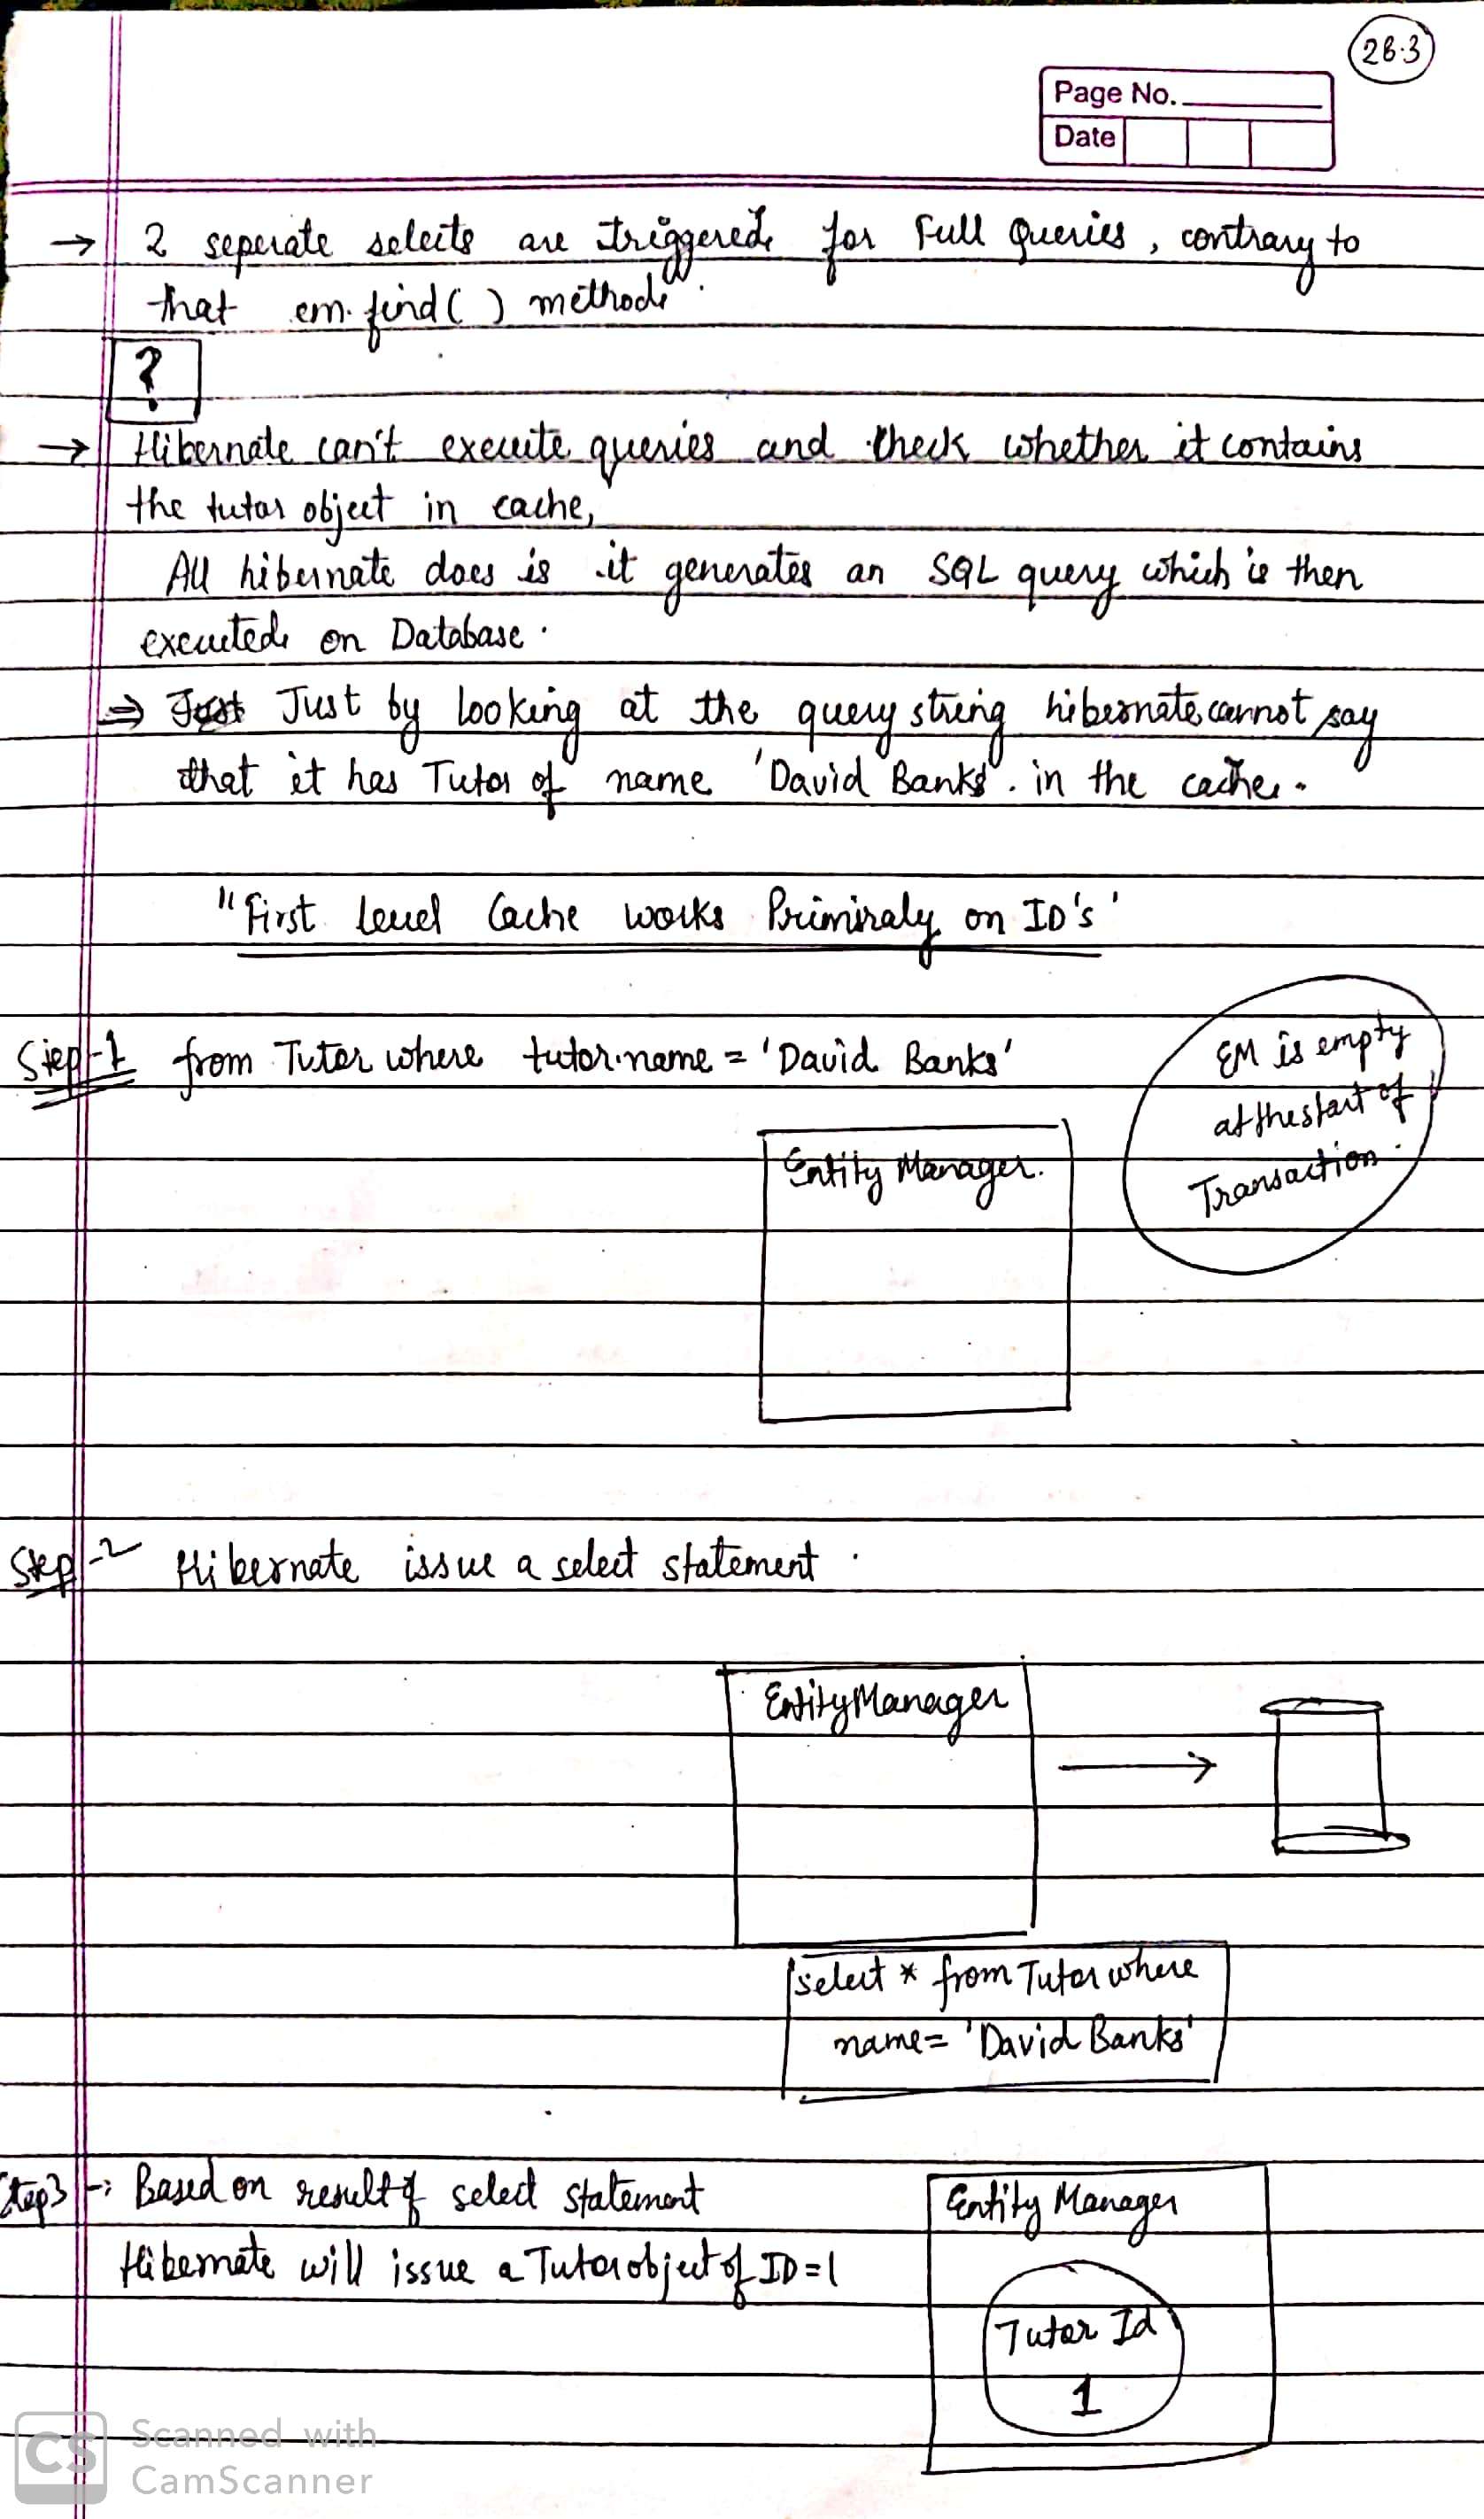 28.3
Page No.
Date
→ 2 seperate selects are triggered for Full Queries, contrary to
that em.find( ) method.
?
→ Hibernate can't execute queries and check whether it contains
the tutor object in cache,
All hibernate does is it generates an SQL query which is then
executed on Database.
⇒ Just by looking at the query string hibernate cannot say
that it has Tutor of name 'David Banks'. in the cache.
"First Level Cache works Primiraly on ID's'
Step-1 from Tutor where tutor.name = 'David Banks'
EM is empty
at the start of
Transaction.
Entity Manager.
Step-2 Hibernate issue a select statement.
EntityManager
select * from Tutor where
name= 'David Banks'
Step3 -: Based on result of select statement
Hibernate will issue a Tutor object of ID=1
Entity Manager
Tutor Id
1
CS
Scanned with
CamScanner